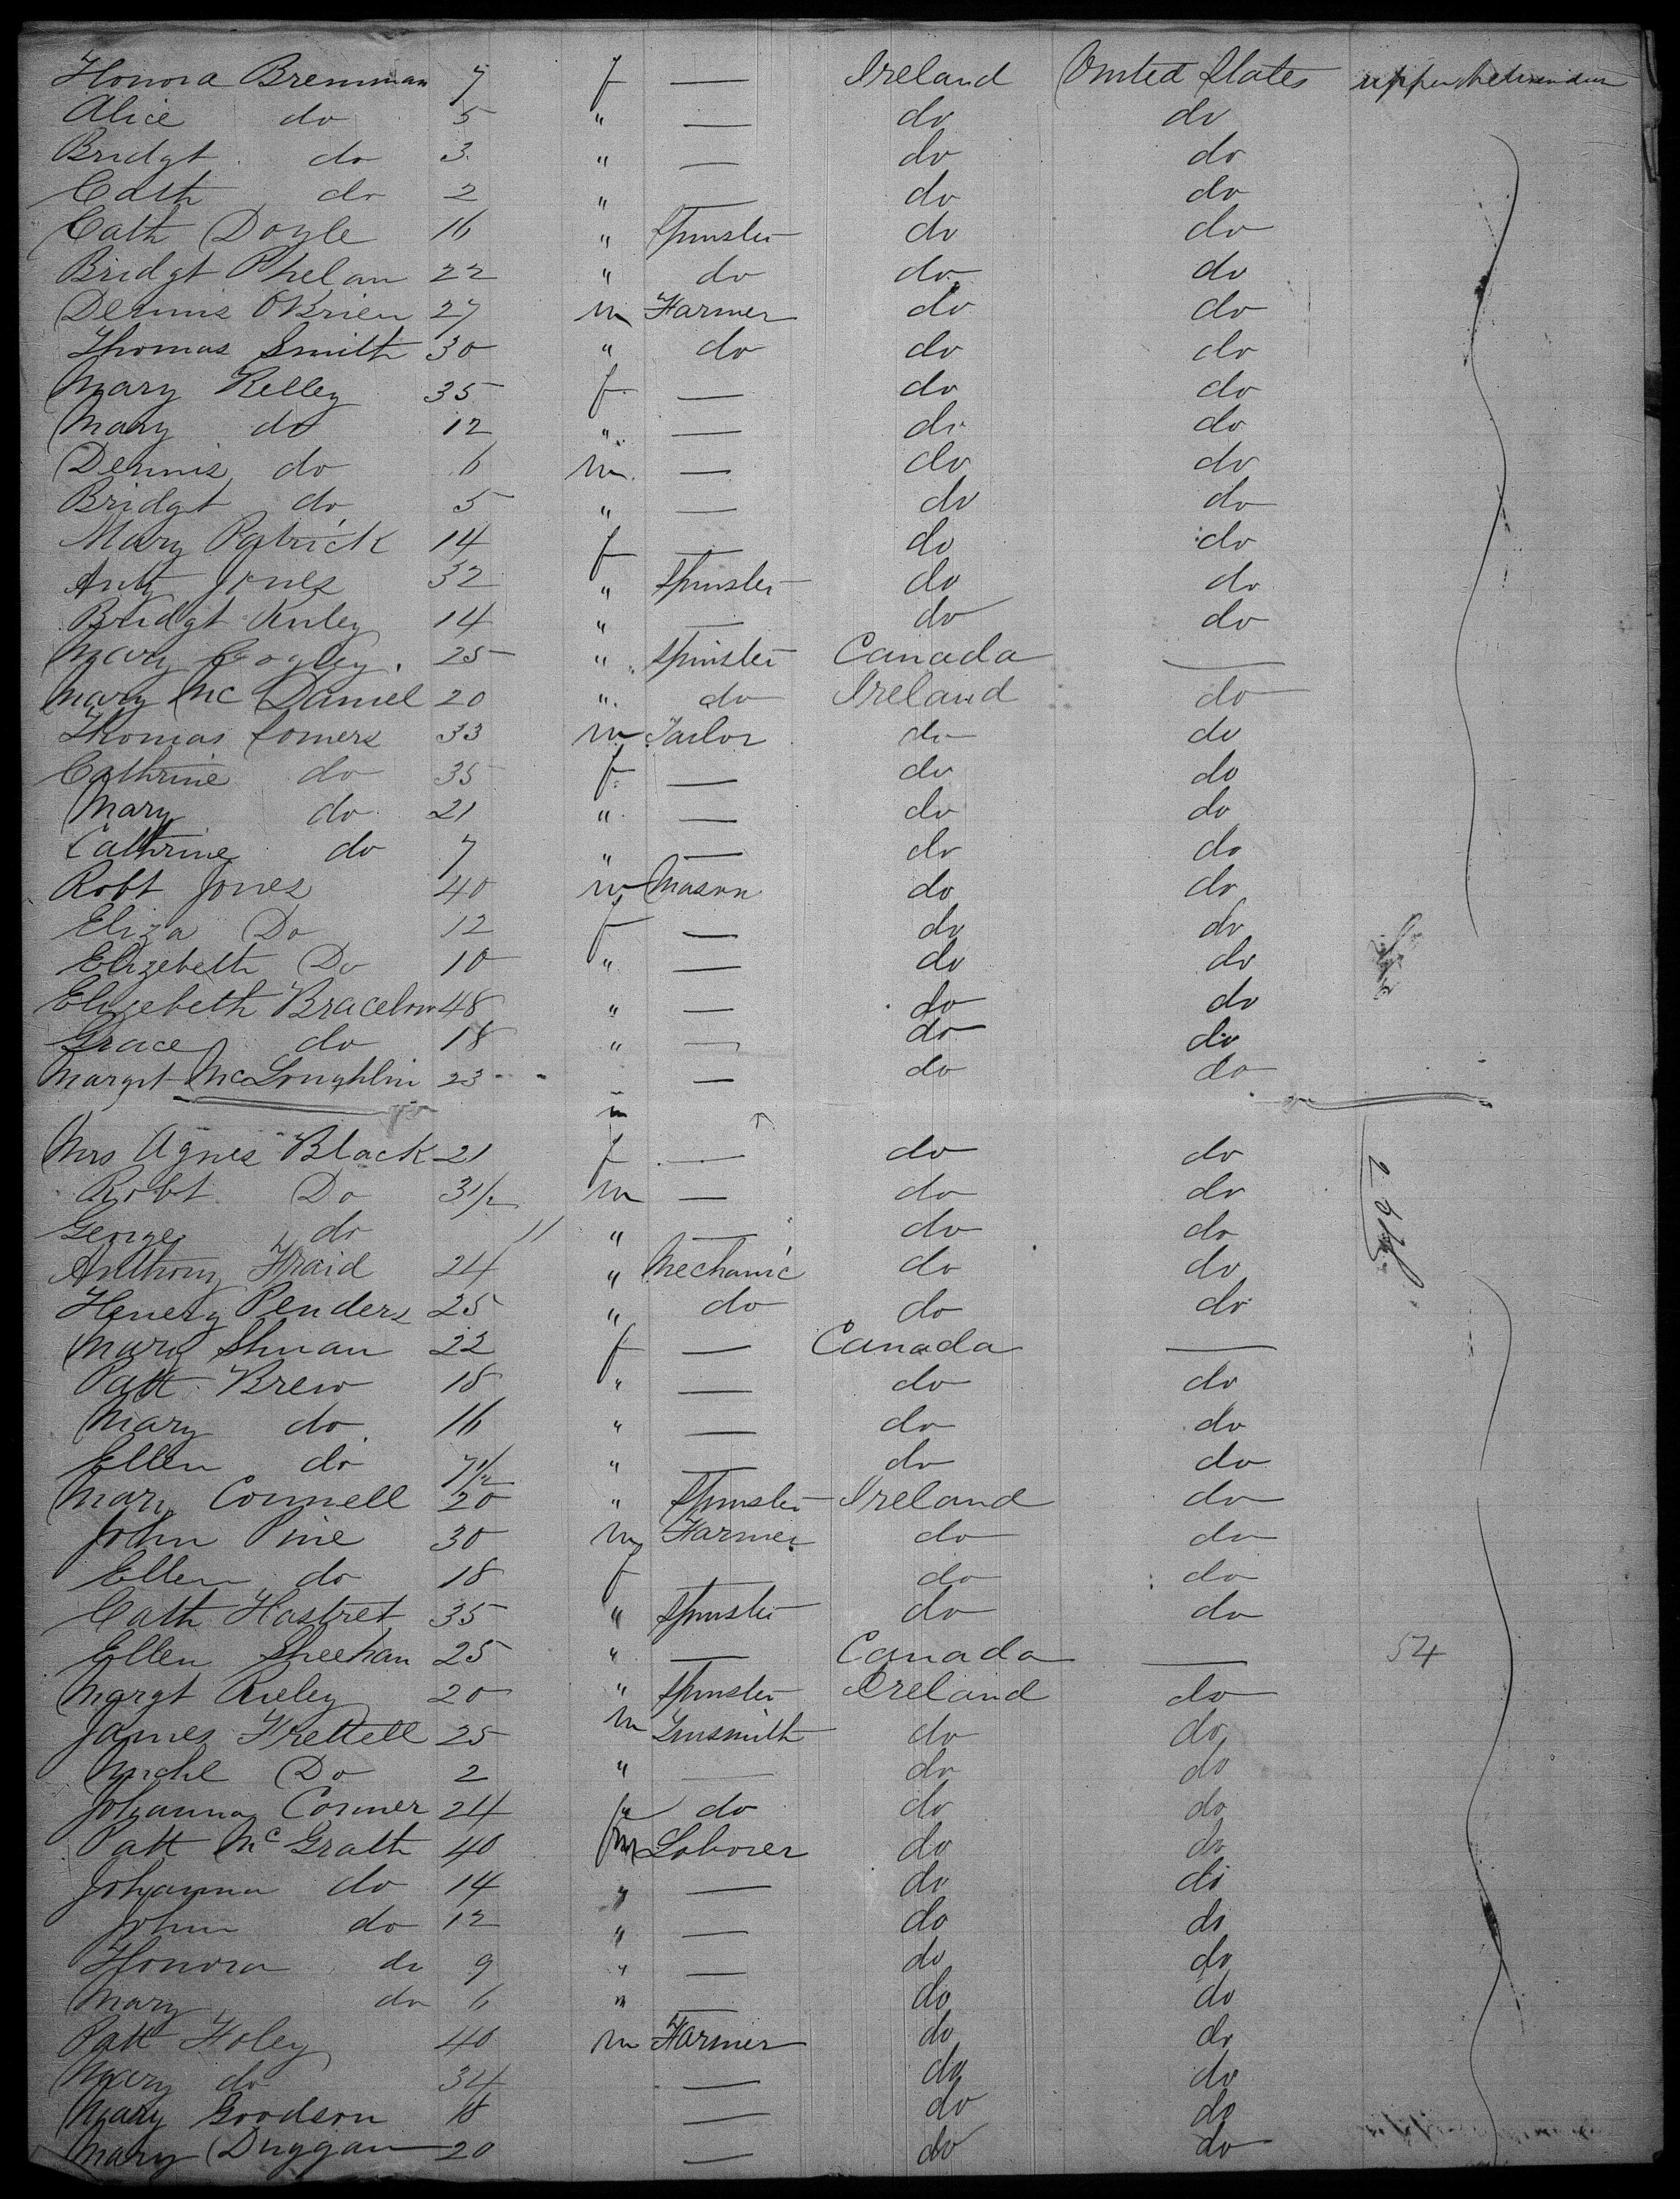 Honora Bremman 7 f — Ireland United States upper between decks
Alice do 5 " — do do
Bridgt do 3 " — do do
Cath do 2 " — do do
Cath Doyle 16 " Spinster do do
Bridgt Phelan 22 " do do do
Dennis OBrien 27 m Farmer do do
Thomas Smith 30 " do do do
Mary Kelley 35 f — do do
Mary do 12 " — do do
Dennis do 6 m — do do
Bridgt do 5 " — do do
Mary Patrick 14 f — do do
Anty Jones 32 " Spinster do do
Bridgt 14 " — do do
Mary Cogley 25 " Spinster Canada —
Mary Mc Daniel 20 " do Ireland do
Thomas Somers 33 m Tailor do do
Cathrine do 35 f — do do
Mary do 21 " — do do
Cathrine do 7 " — do do
Robt Jones 40 m Mason do do
Eliza Do 12 f — do do
Elizebeth Do 10 " — do do
Elizebeth 48 " — do do
Grace do 18 " — do do
Margrt McLoughlin 23 " — do do
m
Mrs Agnes Black 21 f — do do
Robt Do 3 1/2 m — do do
George do 11 " — do do
Anthony Fraid 24 " Mechanic do do
Henery Penders 25 " do do do
Mary 22 f — Canada —
Patt Brew 18 " — do do
Mary do 16 " — do do
Ellen do 7 1/2 " — do do
Mary Connell 20 " Spinster Ireland do
John Pine 30 m Farmer do do
Ellen do 18 f — do do
Cath Hastret 35 " Spinster do do
Ellen Sheehan 25 " — Canada — 54
Margt Rieley 20 " Spinster Ireland do
James Frettell 25 m Tinsmith do do
Michl Do 2 " — do do
Johanna Conner 24 f do do do
Patt McGrath 40 m Laborer do do
Johanna do 14 " — do do
John do 12 " — do do
Honora do 9 " — do do
Mary do 6 " — do do
Patt Foley 40 m Farmer do do
Mary do 34 — do do
Mary Goodson 18 — do do
Mary Duggan 20 — do do